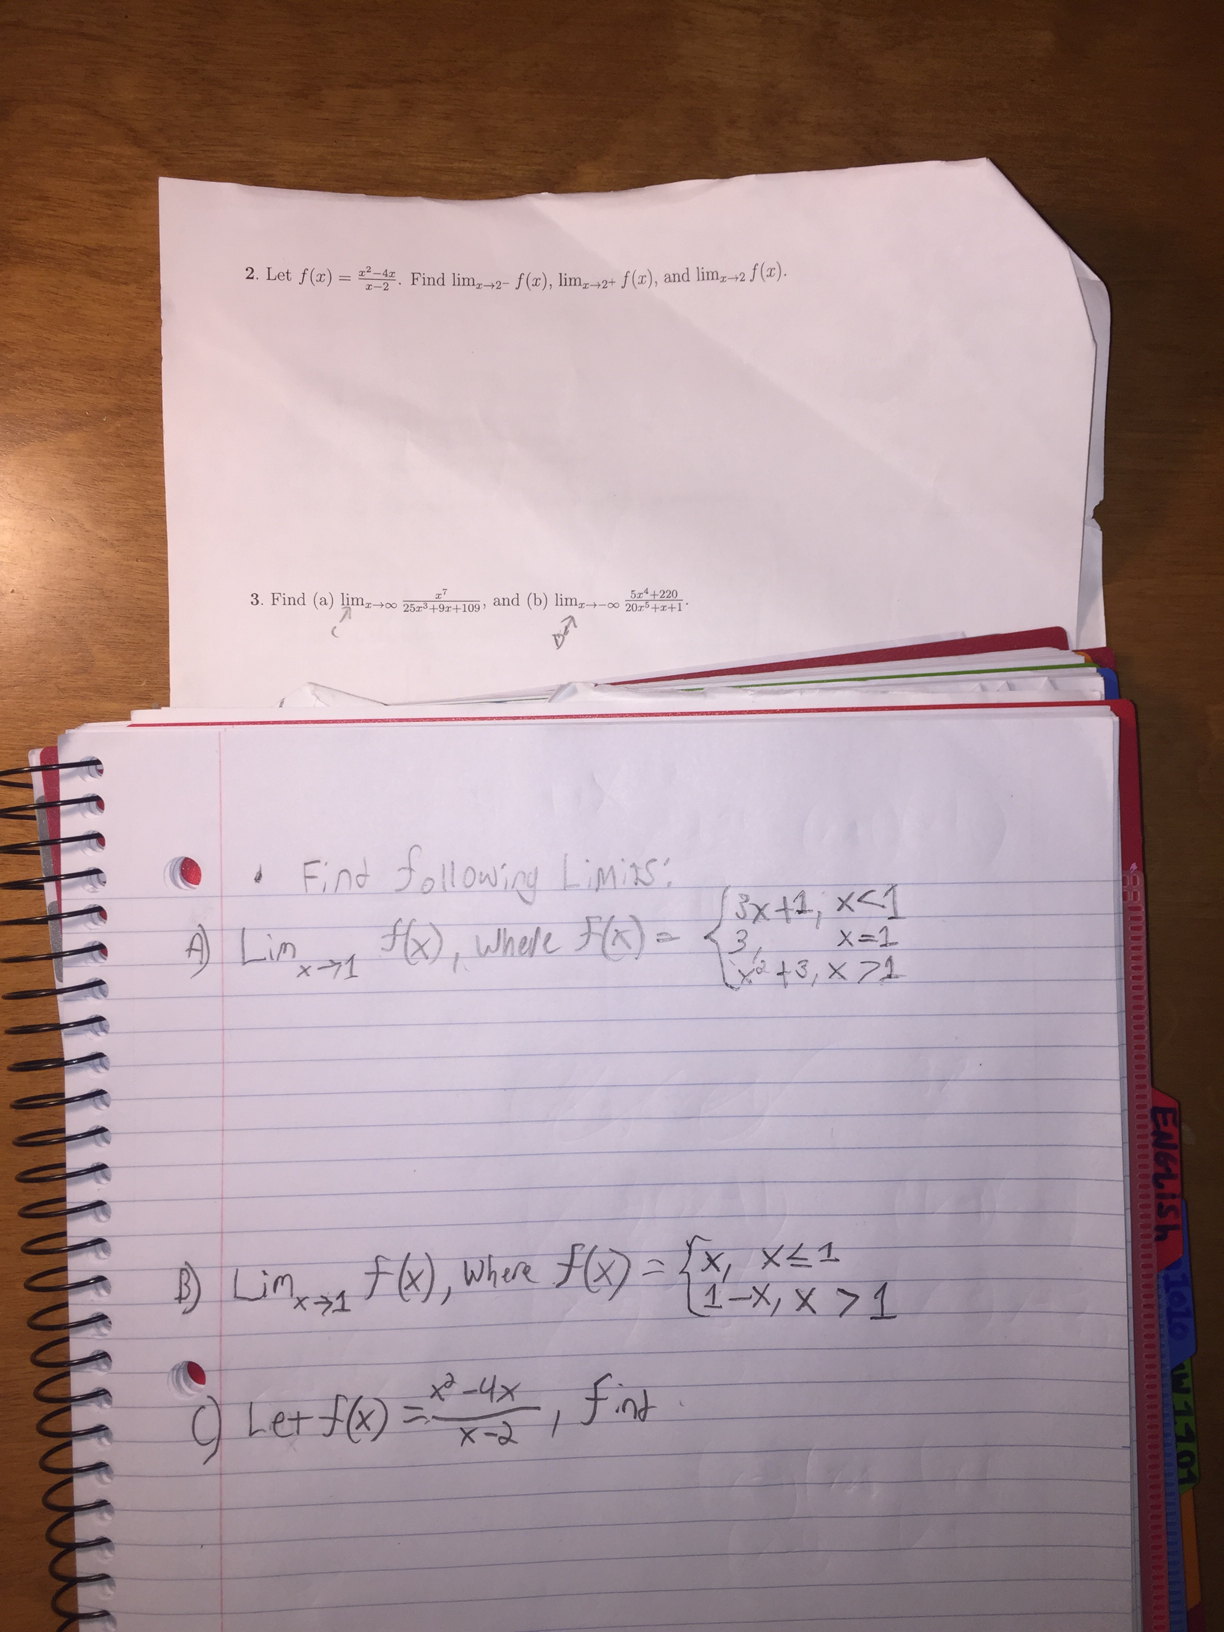 2. Let f(x) = \frac{x^2-4x}{x-2}. Find lim_{x→2^-} f(x), lim_{x→2^+} f(x), and lim_{x→2} f(x).
3. Find (a) lim_{x→∞} \frac{x^7}{25x^3+9x+109}, and (b) lim_{x→-∞} \frac{5x^4+220}{20x^5+x+1}.
• Find following Limits:
A) Lim_{x→1} f(x), where f(x) = { 3x+1, x<1
3, x=1
x^2+3, x>1
B) Lim_{x→1} f(x), where f(x) = { x, x≤1
1-x, x>1
C) Let f(x) = \frac{x^2-4x}{x-2}, find
ENGLISH
1010